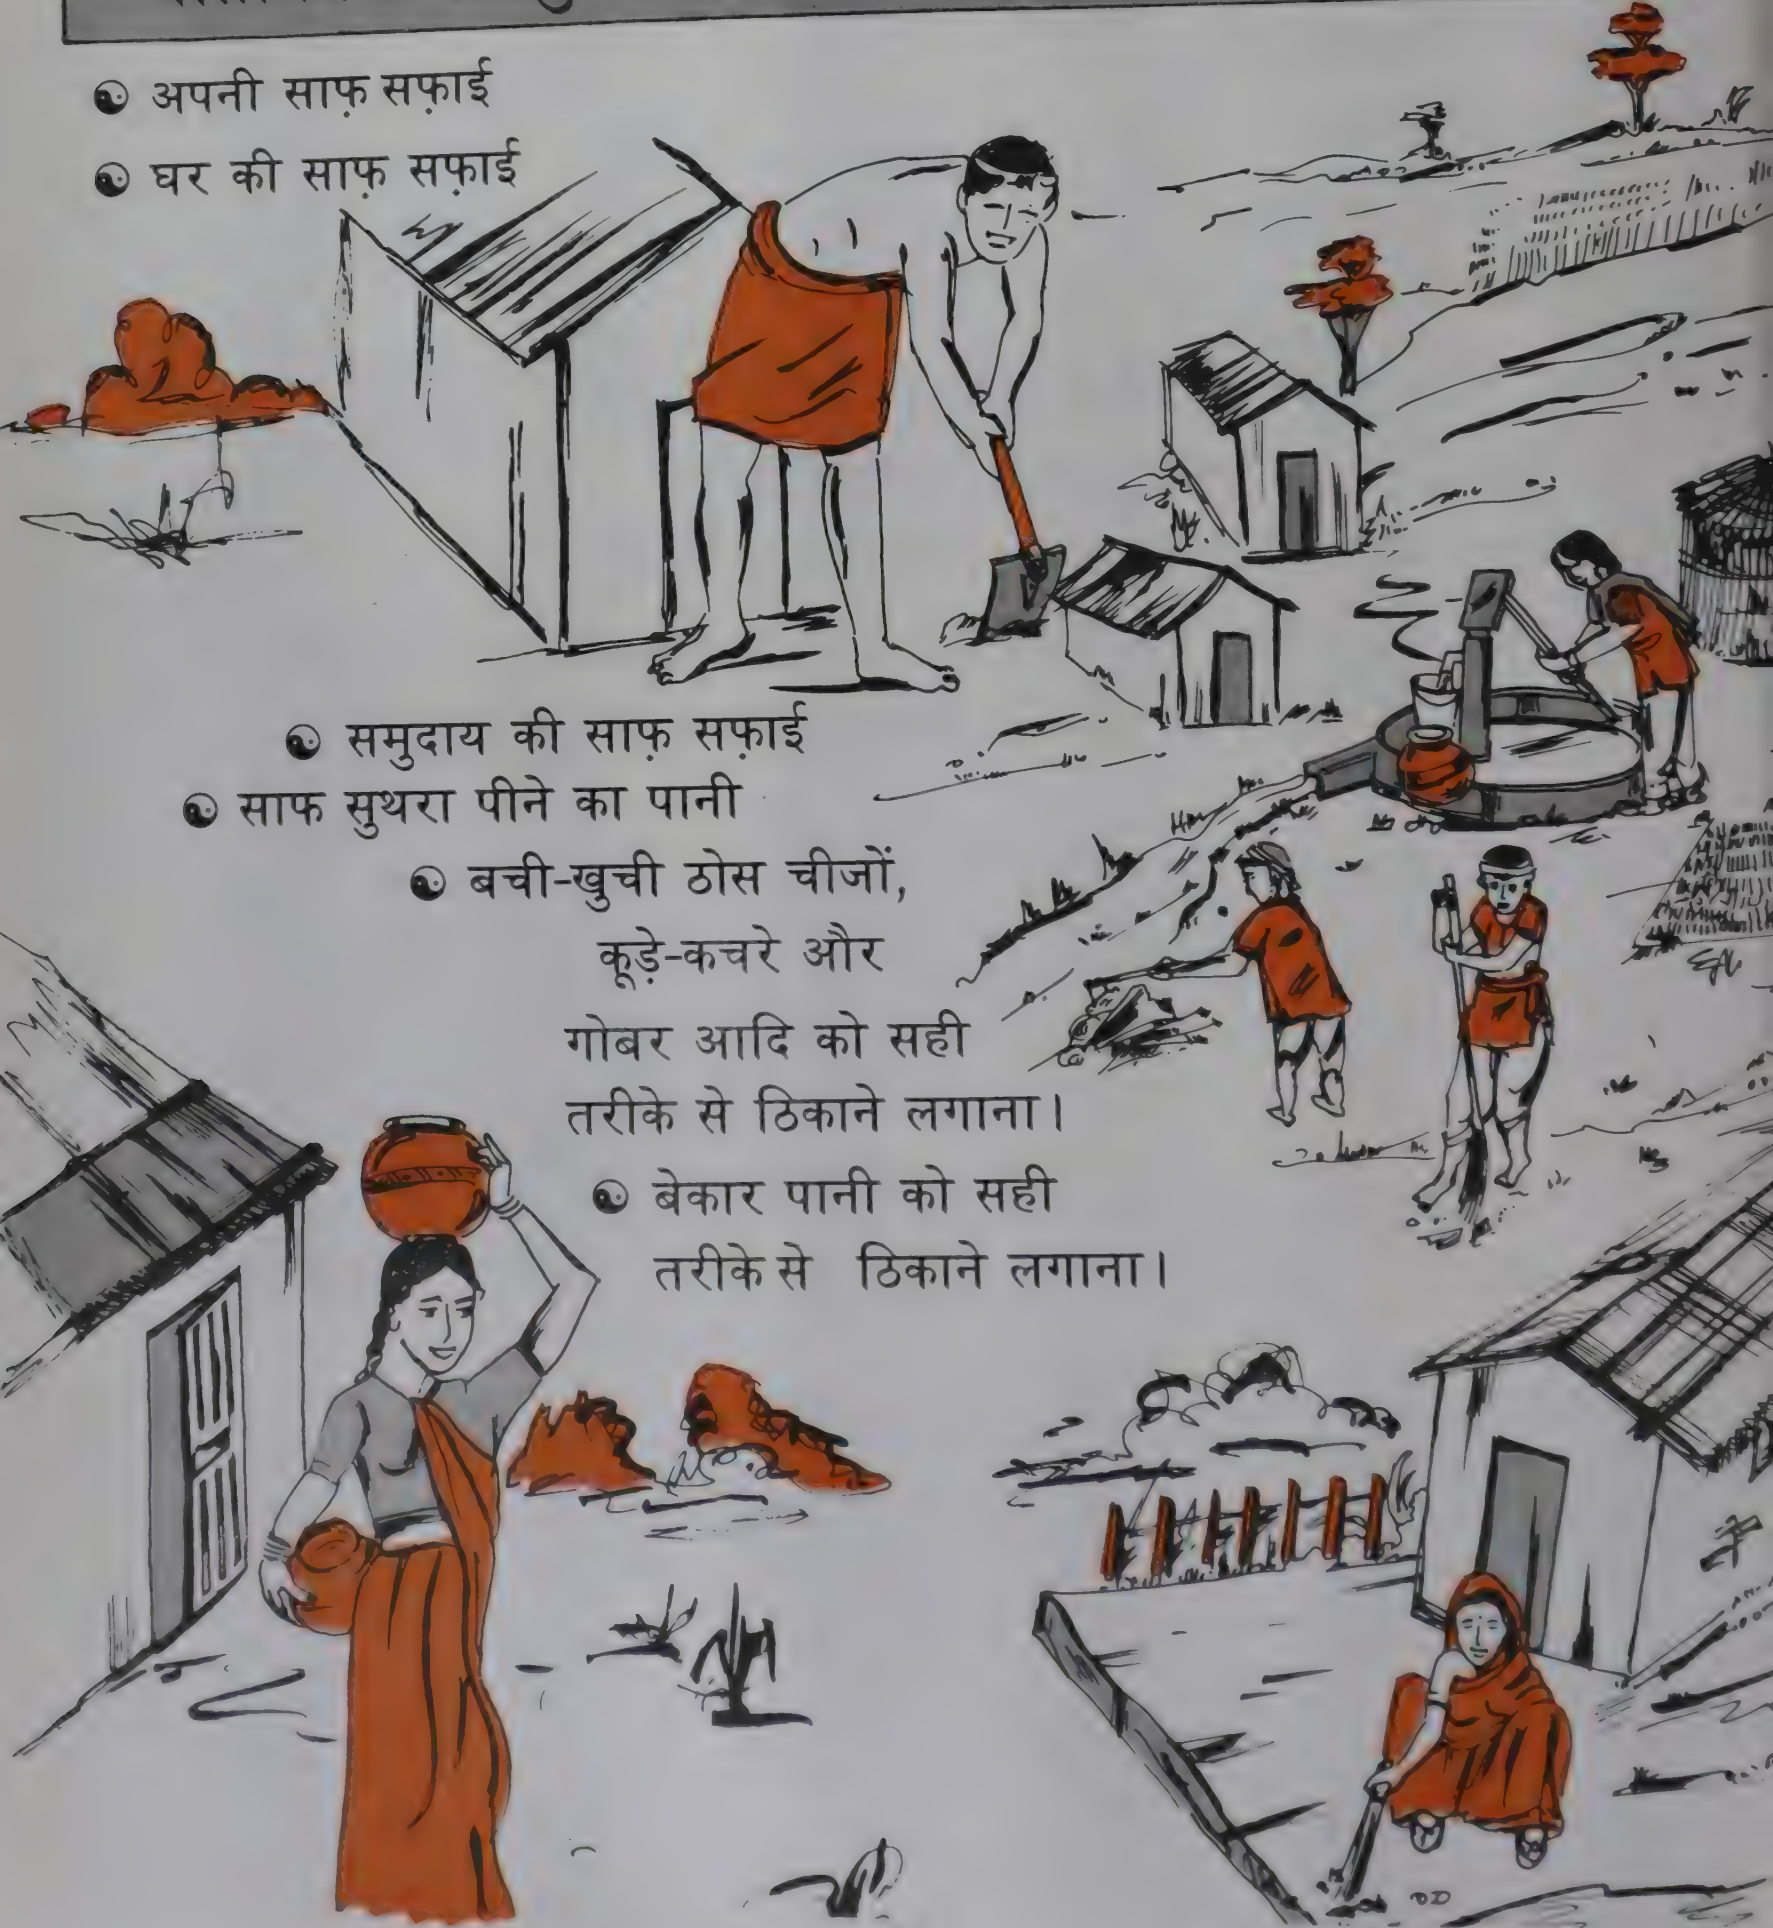 अपनी साफ़ सफ़ाई
घर की साफ़ सफ़ाई
समुदाय की साफ़ सफ़ाई
साफ सुथरा पीने का पानी
बची-खुची ठोस चीजों,
कूड़े-कचरे और
गोबर आदि को सही
तरीके से ठिकाने लगाना।
बेकार पानी को सही
तरीके से ठिकाने लगाना।